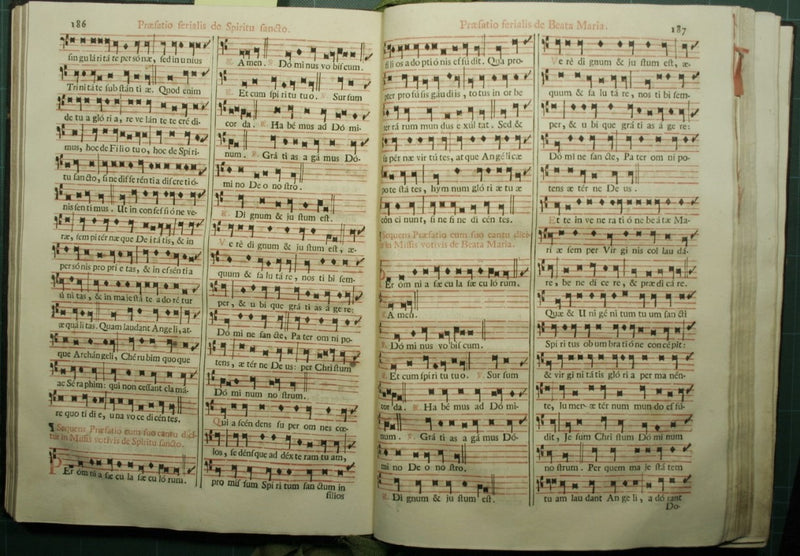 186
Præfatio ferialis de Spiritu sancto.
sin gu lá ri tá te per só næ, sed in u nius
Tri ni tá te sub stán ti æ. Quod enim
de tu a gló ri a, re ve lán te te cré di-
mus, hoc de Fi lio tu o, hoc de Spi ri-
tu san cto, si ne dif fe rén ti a dis cre ti ó-
nis sen ti mus. Ut in con fes si ó ne ve-
ræ, sem pi tér næ que De i tá tis, & in
per só nis pro pri e tas, & in es sén ti a
ú ni tas, & in ma je stá te a do ré tur
æ quá li tas. Quam laudant An ge li, at-
que Archán ge li, Ché ru bim quo que
ac Sé ra phim: qui non cessant cla má-
re quo ti di e, u na vo ce di cén tes.
¶ Sequens Præfatio cum suo cantu dici-
tur in Missis votivis de Spiritu sancto.
PEr óm ni a sæ cu la sæ cu ló rum.
℟. A men. ℣. Dó mi nus vo bis cum.
℟. Et cum spi ri tu tu o. ℣. Sur sum
cor da. ℟. Ha bé mus ad Dó mi-
num. ℣. Grá ti as a gá mus Dó-
mi no De o no stro.
℟. Di gnum & ju stum est.
VE rè di gnum & ju stum est, æ-
quum & sa lu tá re, nos ti bi sem-
per, & u bi que grá ti as á ge re:
Dó mi ne san cte, Pa ter om ni po-
tens, æ tér ne De us: per Chri stum
Dó mi num no strum.
Qui a scén dens su per om nes cœ-
los, se dens que ad déx te ram tu am,
pro mis sum Spi ri tum san ctum in
filios
Præfatio ferialis de Beata Maria.
187
fí li os a do pti ó nis ef fú dit. Qua pro-
pter pro fu sis gáu di is, to tus in or be
ter rá rum mun dus e xúl tat. Sed &
su pér næ vir tú tes, at que An gé li cæ
po te stá tes, hym num gló ri æ tu æ
cón ci nunt, si ne fi ne di cén tes.
Sequens Præfatio cum suo cantu dici-
tur in Missis votivis de Beata Maria.
PEr óm ni a sæ cu la sæ cu ló rum.
℟. A men.
℣. Dó mi nus vo bis cum.
℟. Et cum spi ri tu tu o. ℣. Sur sum
cor da. ℟. Ha bé mus ad Dó mi-
num. ℣. Grá ti as a gá mus Dó-
mi no De o no stro.
℟. Di gnum & ju stum est.
VE rè di gnum & ju stum est, æ-
quum & sa lu tá re, nos ti bi sem-
per, & u bi que grá ti as á ge re:
Dó mi ne san cte, Pa ter om ni po-
tens æ tér ne De us.
Et te in ve ne ra ti ó ne be á tæ Ma-
rí æ sem per Vir gi nis col lau dá-
re, be ne dí ce re, & præ di cá re.
Quæ & U ni gé ni tum tu um san cti
Spí ri tus ob um bra ti ó ne con cé pit:
& vir gi ni tá tis gló ri a per ma nén-
te, lu men æ tér num mun do ef fú-
dit, Je sum Chri stum Dó mi num
no strum. Per quem ma je stá tem
tu am lau dant An ge li, a dó rant
Do-